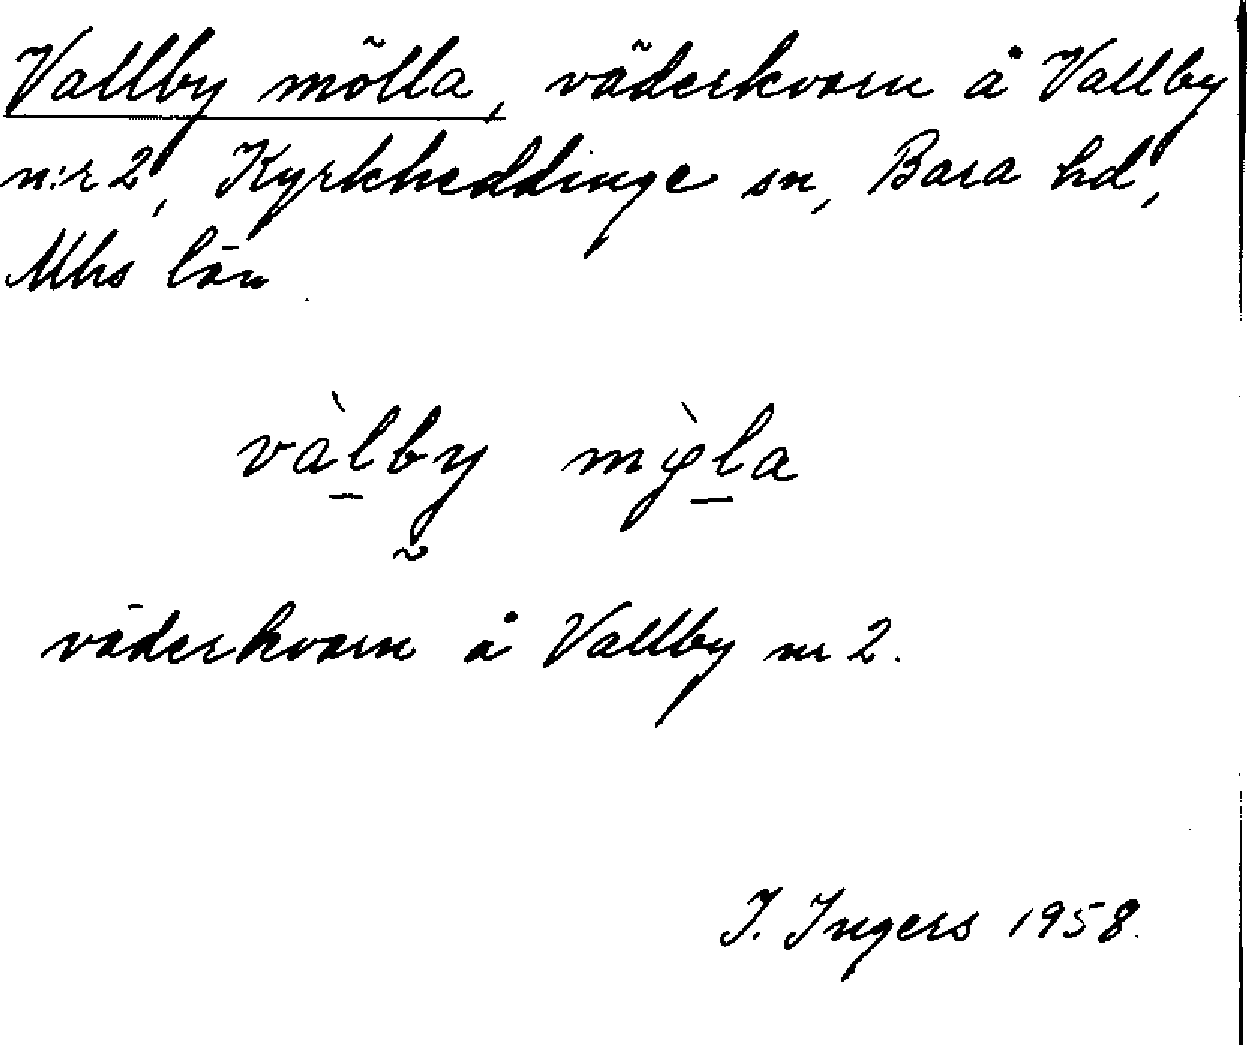 Vallby mölla, väderkvarn å Vallby
n:r 2, Kyrkheddinge sn, Bara hd,
Mhs län
vàlby mỳla
väderkvarn å Vallby nr 2.
I. Ingers 1958.